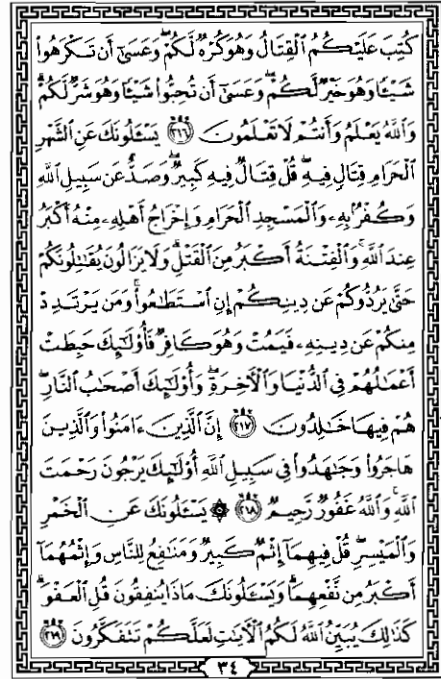 كُتِبَ عَلَيْكُمُ ٱلْقِتَالُ وَهُوَ كُرْهٌ لَّكُمْ ۖ وَعَسَىٰٓ أَن تَكْرَهُوا۟
شَيْـًٔا وَهُوَ خَيْرٌ لَّكُمْ ۖ وَعَسَىٰٓ أَن تُحِبُّوا۟ شَيْـًٔا وَهُوَ شَرٌّ لَّكُمْ ۗ
وَٱللَّهُ يَعْلَمُ وَأَنتُمْ لَا تَعْلَمُونَ ٢١٦ يَسْـَٔلُونَكَ عَنِ ٱلشَّهْرِ
ٱلْحَرَامِ قِتَالٍ فِيهِ ۖ قُلْ قِتَالٌ فِيهِ كَبِيرٌ ۖ وَصَدٌّ عَن سَبِيلِ ٱللَّهِ
وَكُفْرٌۢ بِهِۦ وَٱلْمَسْجِدِ ٱلْحَرَامِ وَإِخْرَاجُ أَهْلِهِۦ مِنْهُ أَكْبَرُ
عِندَ ٱللَّهِ ۚ وَٱلْفِتْنَةُ أَكْبَرُ مِنَ ٱلْقَتْلِ ۗ وَلَا يَزَالُونَ يُقَـٰتِلُونَكُمْ
حَتَّىٰ يَرُدُّوكُمْ عَن دِينِكُمْ إِنِ ٱسْتَطَـٰعُوا۟ ۚ وَمَن يَرْتَدِدْ
مِنكُمْ عَن دِينِهِۦ فَيَمُتْ وَهُوَ كَافِرٌ فَأُو۟لَـٰٓئِكَ حَبِطَتْ
أَعْمَـٰلُهُمْ فِى ٱلدُّنْيَا وَٱلْـَٔاخِرَةِ ۖ وَأُو۟لَـٰٓئِكَ أَصْحَـٰبُ ٱلنَّارِ ۖ
هُمْ فِيهَا خَـٰلِدُونَ ٢١٧ إِنَّ ٱلَّذِينَ ءَامَنُوا۟ وَٱلَّذِينَ
هَاجَرُوا۟ وَجَـٰهَدُوا۟ فِى سَبِيلِ ٱللَّهِ أُو۟لَـٰٓئِكَ يَرْجُونَ رَحْمَتَ
ٱللَّهِ ۚ وَٱللَّهُ غَفُورٌ رَّحِيمٌ ٢١٨ ۞ يَسْـَٔلُونَكَ عَنِ ٱلْخَمْرِ
وَٱلْمَيْسِرِ ۖ قُلْ فِيهِمَآ إِثْمٌ كَبِيرٌ وَمَنَـٰفِعُ لِلنَّاسِ وَإِثْمُهُمَآ
أَكْبَرُ مِن نَّفْعِهِمَا ۗ وَيَسْـَٔلُونَكَ مَاذَا يُنفِقُونَ قُلِ ٱلْعَفْوَ ۗ
كَذَٰلِكَ يُبَيِّنُ ٱللَّهُ لَكُمُ ٱلْـَٔايَـٰتِ لَعَلَّكُمْ تَتَفَكَّرُونَ ٢١٩
٣٤